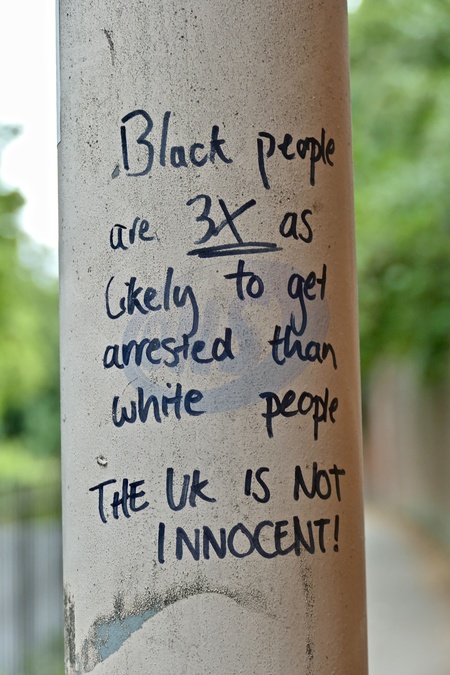 Black people
are 3X as
likely to get
arrested than
white people
THE UK IS NOT
INNOCENT!